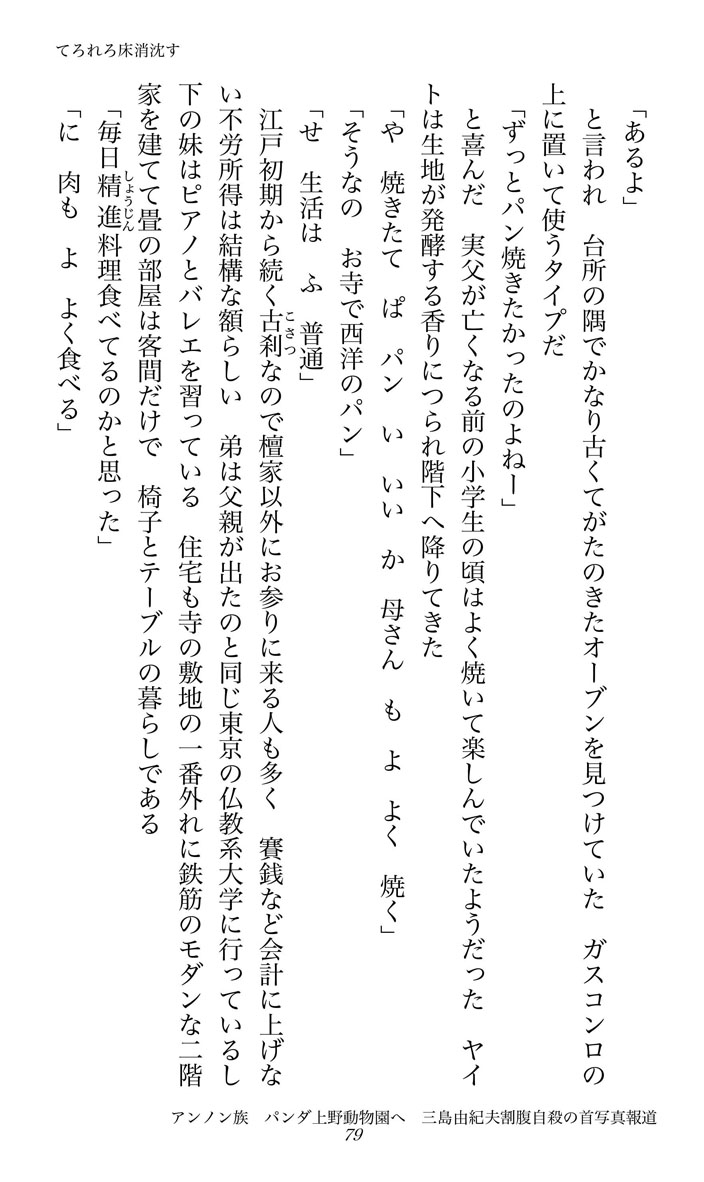 てろれろ床消沈す
「あるよ」
と言われ　台所の隅でかなり古くてがたのきたオーブンを見つけていた　ガスコンロの
上に置いて使うタイプだ
「ずっとパン焼きたかったのよねー」
と喜んだ　実父が亡くなる前の小学生の頃はよく焼いて楽しんでいたようだった　ヤイ
トは生地が発酵する香りにつられ階下へ降りてきた
「や　焼きたて　ぱ　パン　い　いい　か　母さん　も　よ　よく　焼く」
「そうなの　お寺で西洋のパン」
「せ　生活は　ふ　普通」
江戸初期から続く古刹なので檀家以外にお参りに来る人も多く　賽銭など会計に上げな
こさつ
い不労所得は結構な額らしい　弟は父親が出たのと同じ東京の仏教系大学に行っているし
下の妹はピアノとバレエを習っている　住宅も寺の敷地の一番外れに鉄筋のモダンな二階
家を建てて畳の部屋は客間だけで　椅子とテーブルの暮らしである
「毎日精進料理食べてるのかと思った」
しょうじん
「に　肉も　よ　よく食べる」
アンノン族　パンダ上野動物園へ　三島由紀夫割腹自殺の首写真報道
79